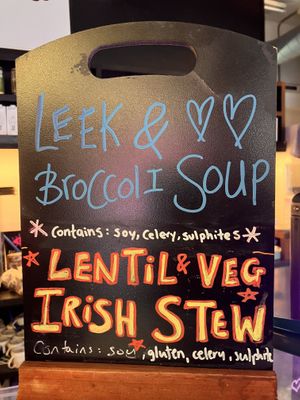 LEEK & ♡♡
BROCCOLI SOUP
* Contains: soy, celery, sulphites *
LENTIL & VEG
IRISH STEW
Contains: soy, gluten, celery, sulphite